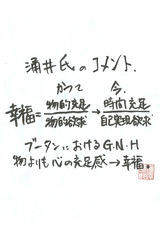 涌井氏のコメント.
かつて 今.
幸福=物的充足/物的欲求→時間充足/自己実現欲求
ブータンにおけるG.N.H
物よりも心の充足感→幸福.